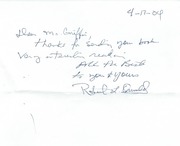 4-12-04
Dear Mr. Griffi,
thanks for sending your book
Very interesting reading
All the Best
to you & yours
Robert